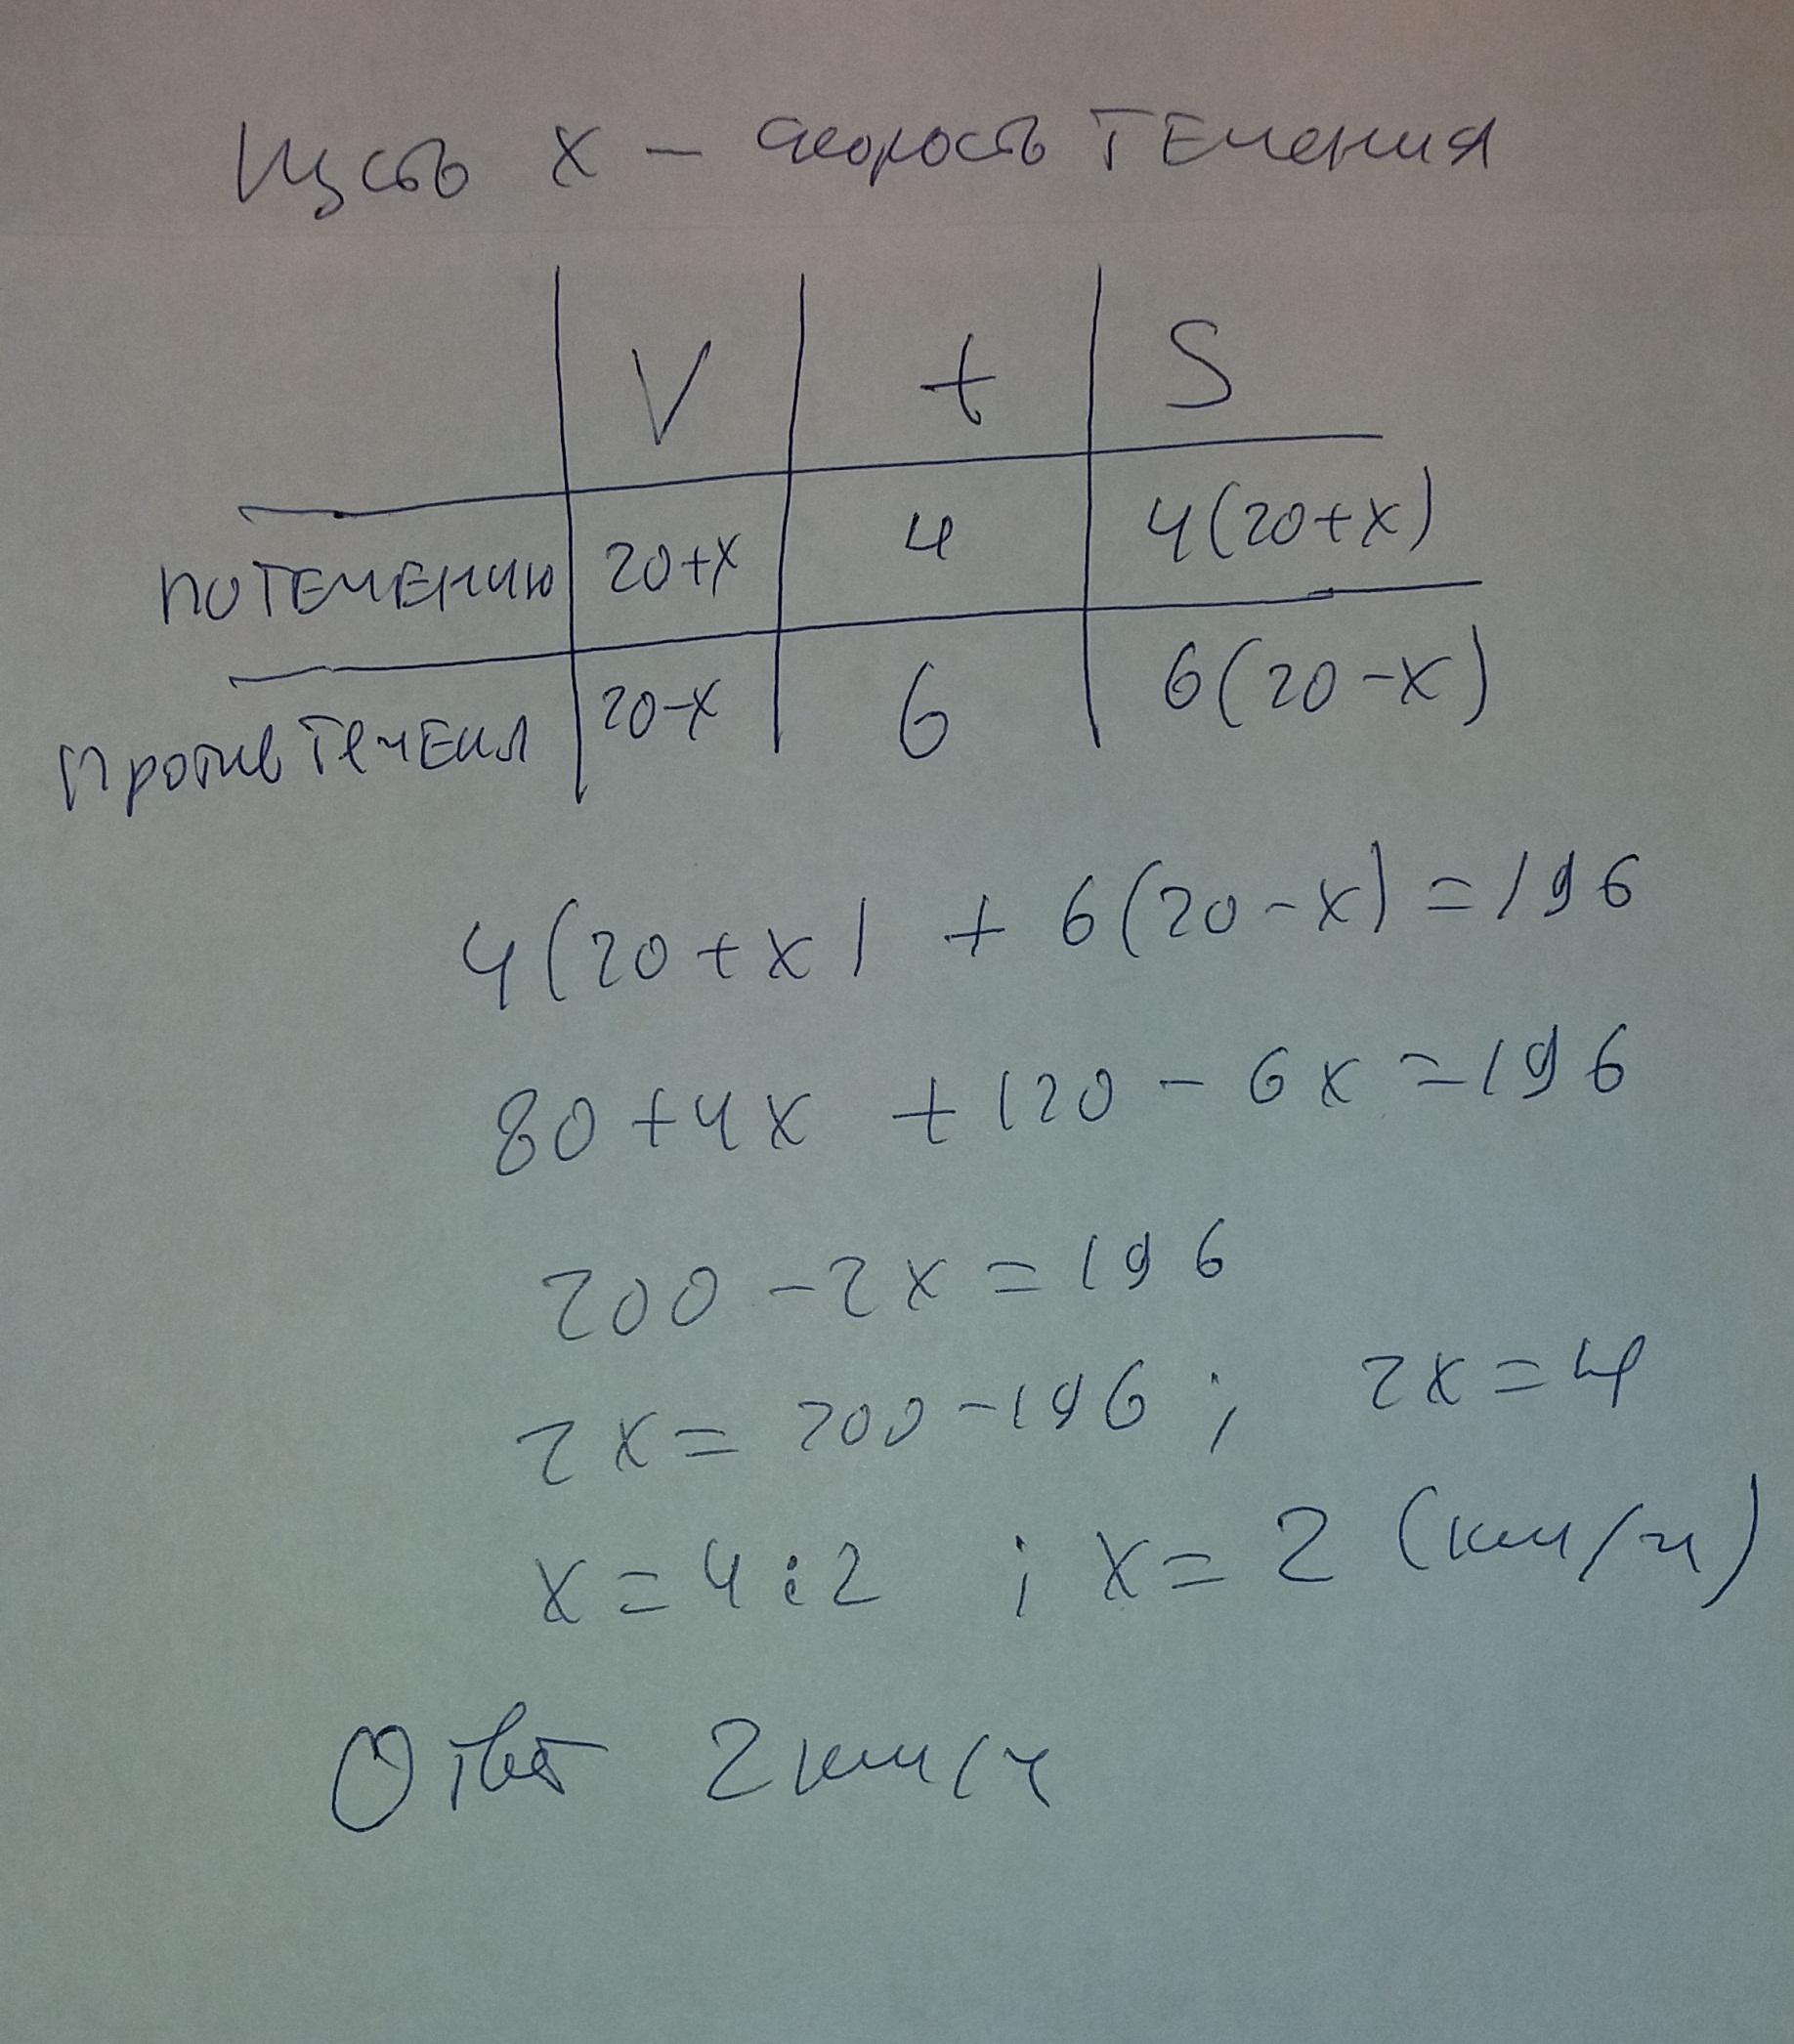 Пусть x – скорость течения
V t S
по течению 20+x 4 4(20+x)
против течения 20-x 6 6(20-x)
4(20+x) + 6(20-x) = 196
80+4x +120 - 6x = 196
200 - 2x = 196
2x = 200-196 ; 2x = 4
x = 4:2 ; x = 2 (км/ч)
Ответ 2 км/ч